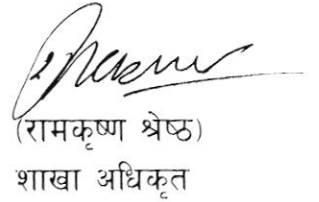 (रामकृष्ण श्रेष्ठ)
शाखा अधिकृत